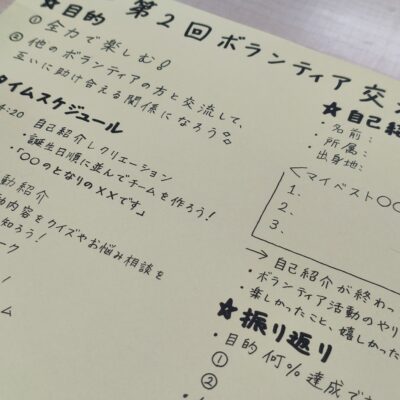 第2回ボランティア交
★目的
①全力で楽しむ!
②他のボランティアの方と交流して、
互いに助け合える関係になろう
タイムスケジュール
4:20
自己紹介レクリエーション
・誕生日順に並んでチームを作ろう!
・「○○のとなりの××です」
動紹介
動内容をクイズやお悩み相談を
知ろう!
ーク
ム
★自己紹
・名前:
・所属:
・出身地:
<マイベスト○○
1.
2.
3.
→自己紹介が終わっ
・ボランティア活動のやり
・楽しかったこと、嬉しかった
★振り返り
・目的何%達成でき
①
②